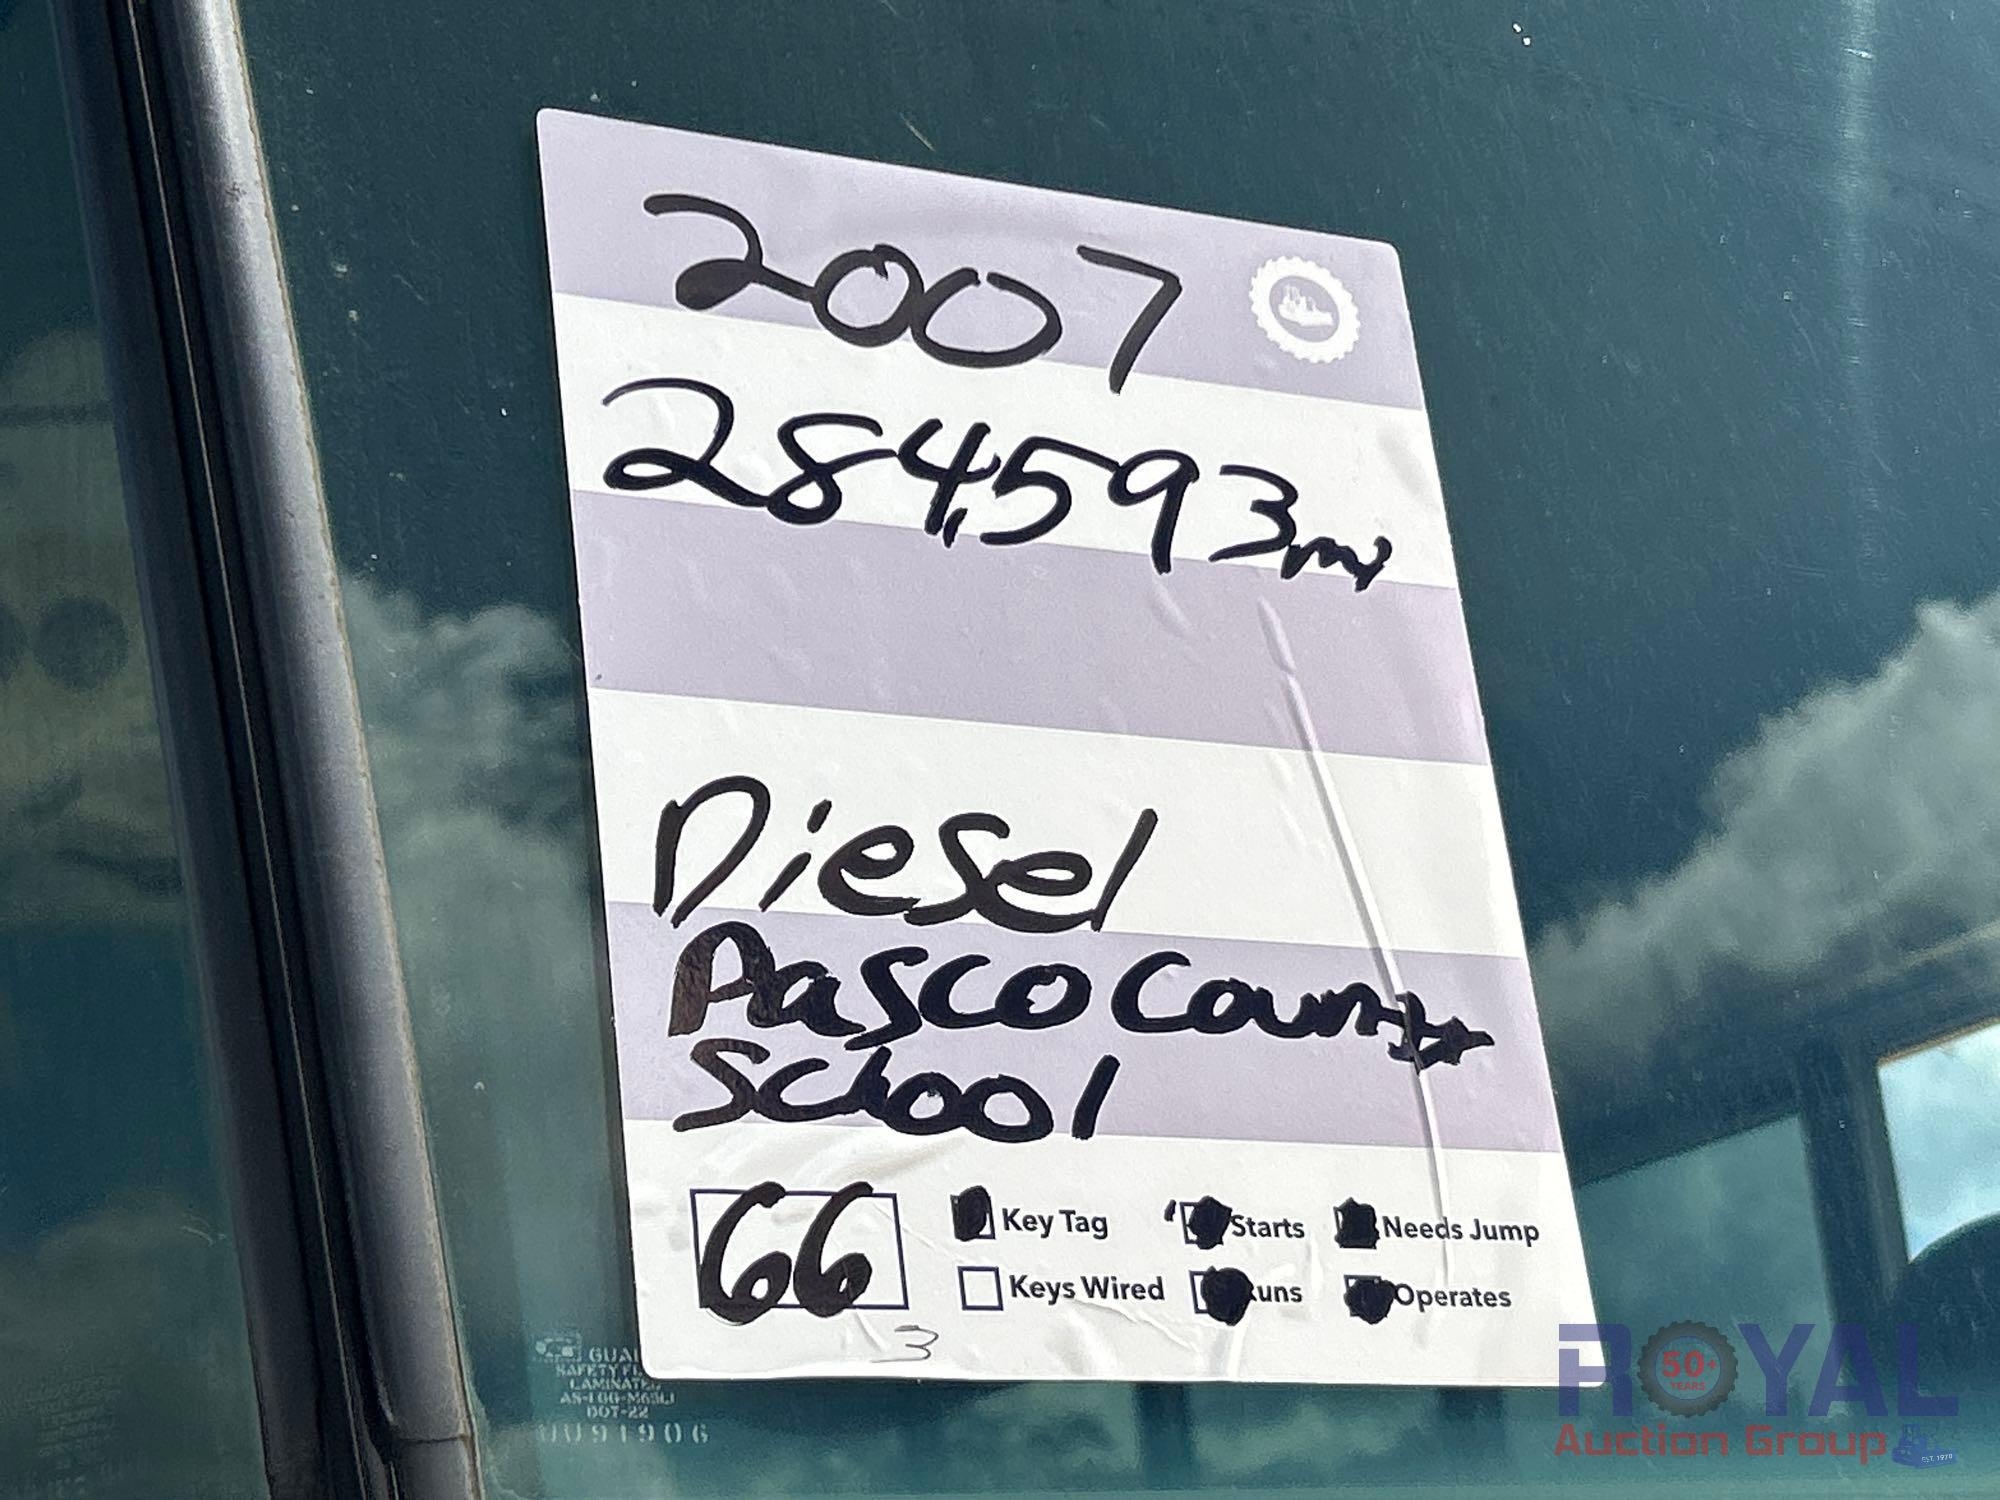 2007
284,593 mi
Diesel
Pasco County
School
66
Key Tag Starts Needs Jump
Keys Wired Runs Operates
3
SAFETY
LAMINATE
DOT-22
ROYAL
50+
YEARS
Auction Group
EST. 1970